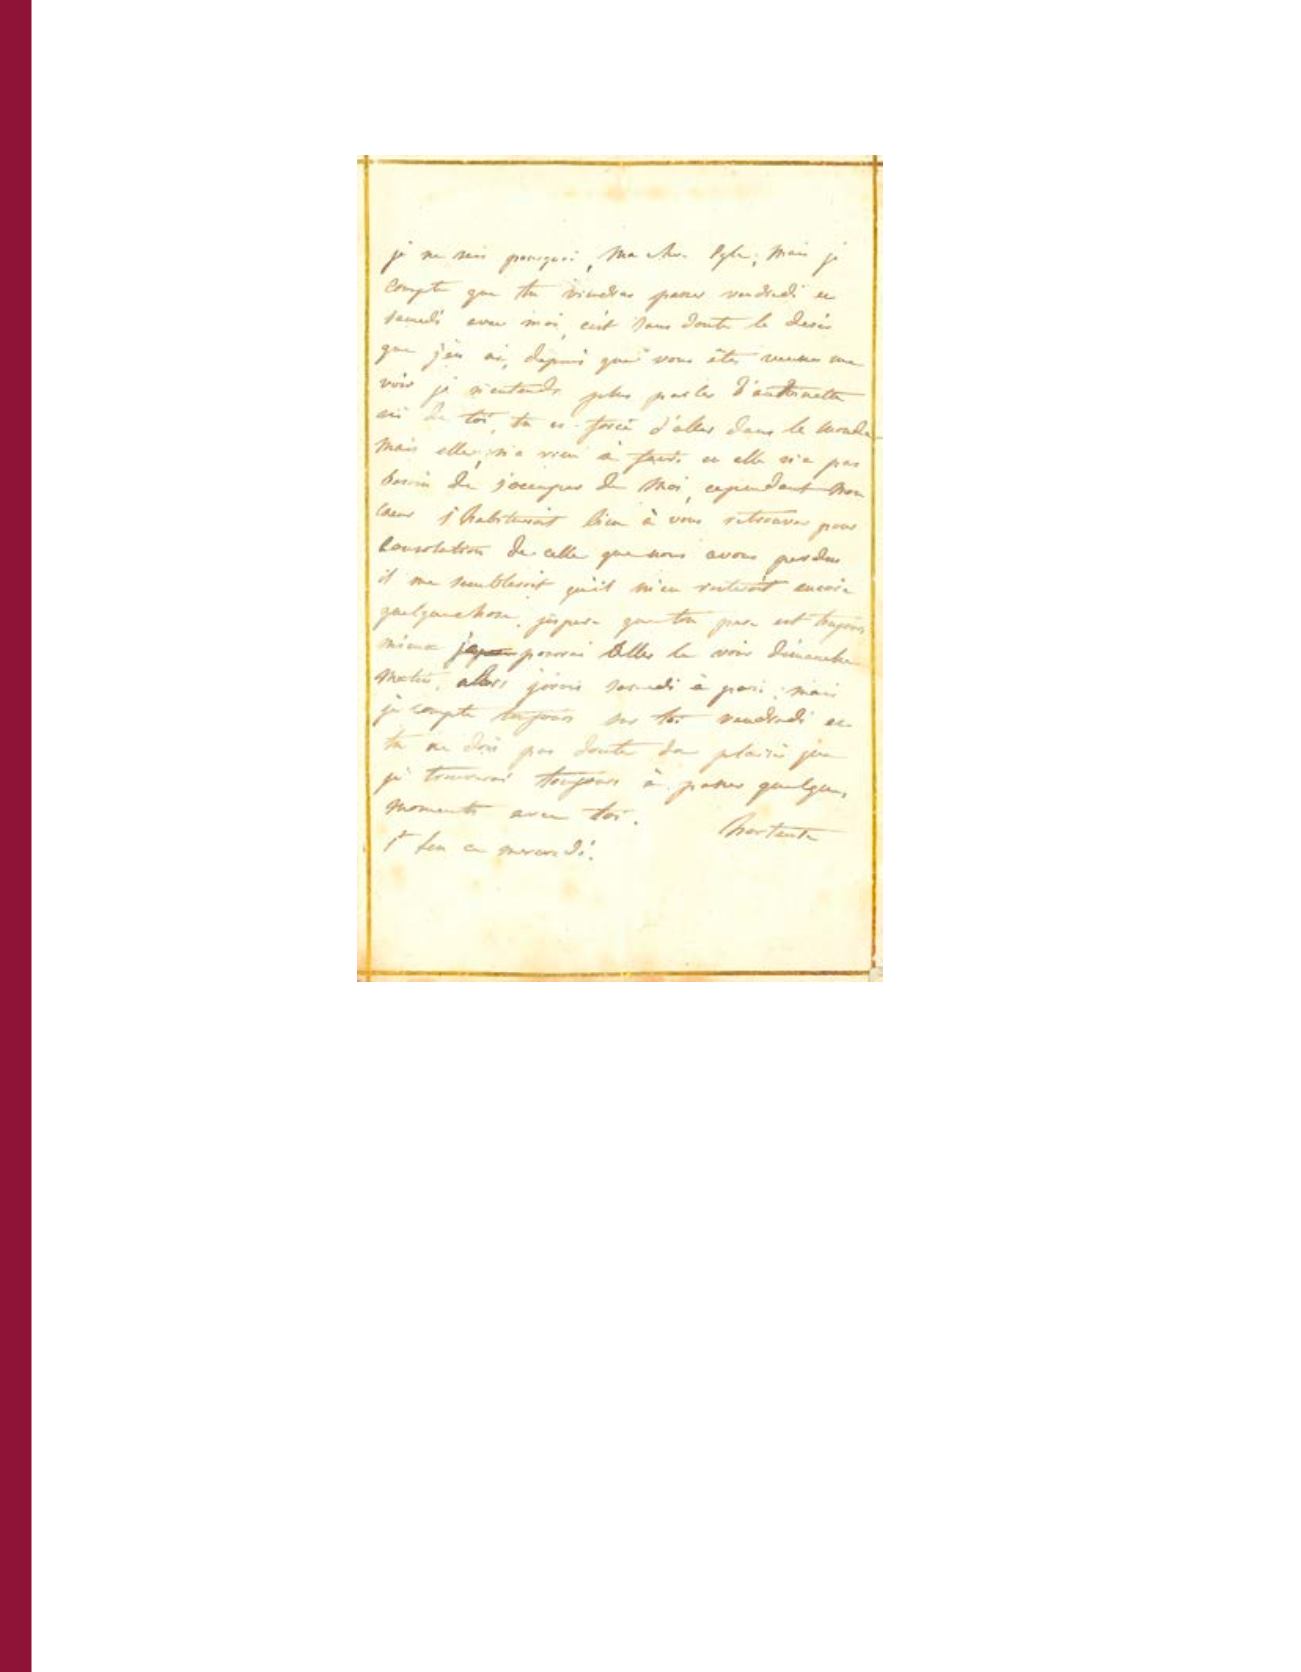 je ne sais pourquoi, ma chere Eglé, mais je
compte que tu viendras passer vendredi et
samedi avec moi, c'est sans doute le desir
que j'en ai, depuis que vous êtes venues me
voir je n'entends plus parler d'antoinette
ni de toi, tu es forcé d'aller dans le monde
mais elle, n'a rien à faire et elle n'a pas
besoin de s'occuper de moi, cependant mon
coeur s'habituroit bien à vous retrouver pour
consolation de celle que nous avons perdue
il me sembleroit qu'il m'en resteroit encore
quelquechose, j'espere que ton pere est toujours
mieux pourrai aller le voir dimanche
matin, alors j'irois samedi à paris, mais
je compte toujours sur toi vendredi et
tu ne dois pas douter du plaisir que
je trouverai toujours à passer quelques
moments avec toi.
hortense
st leu ce mercredi.